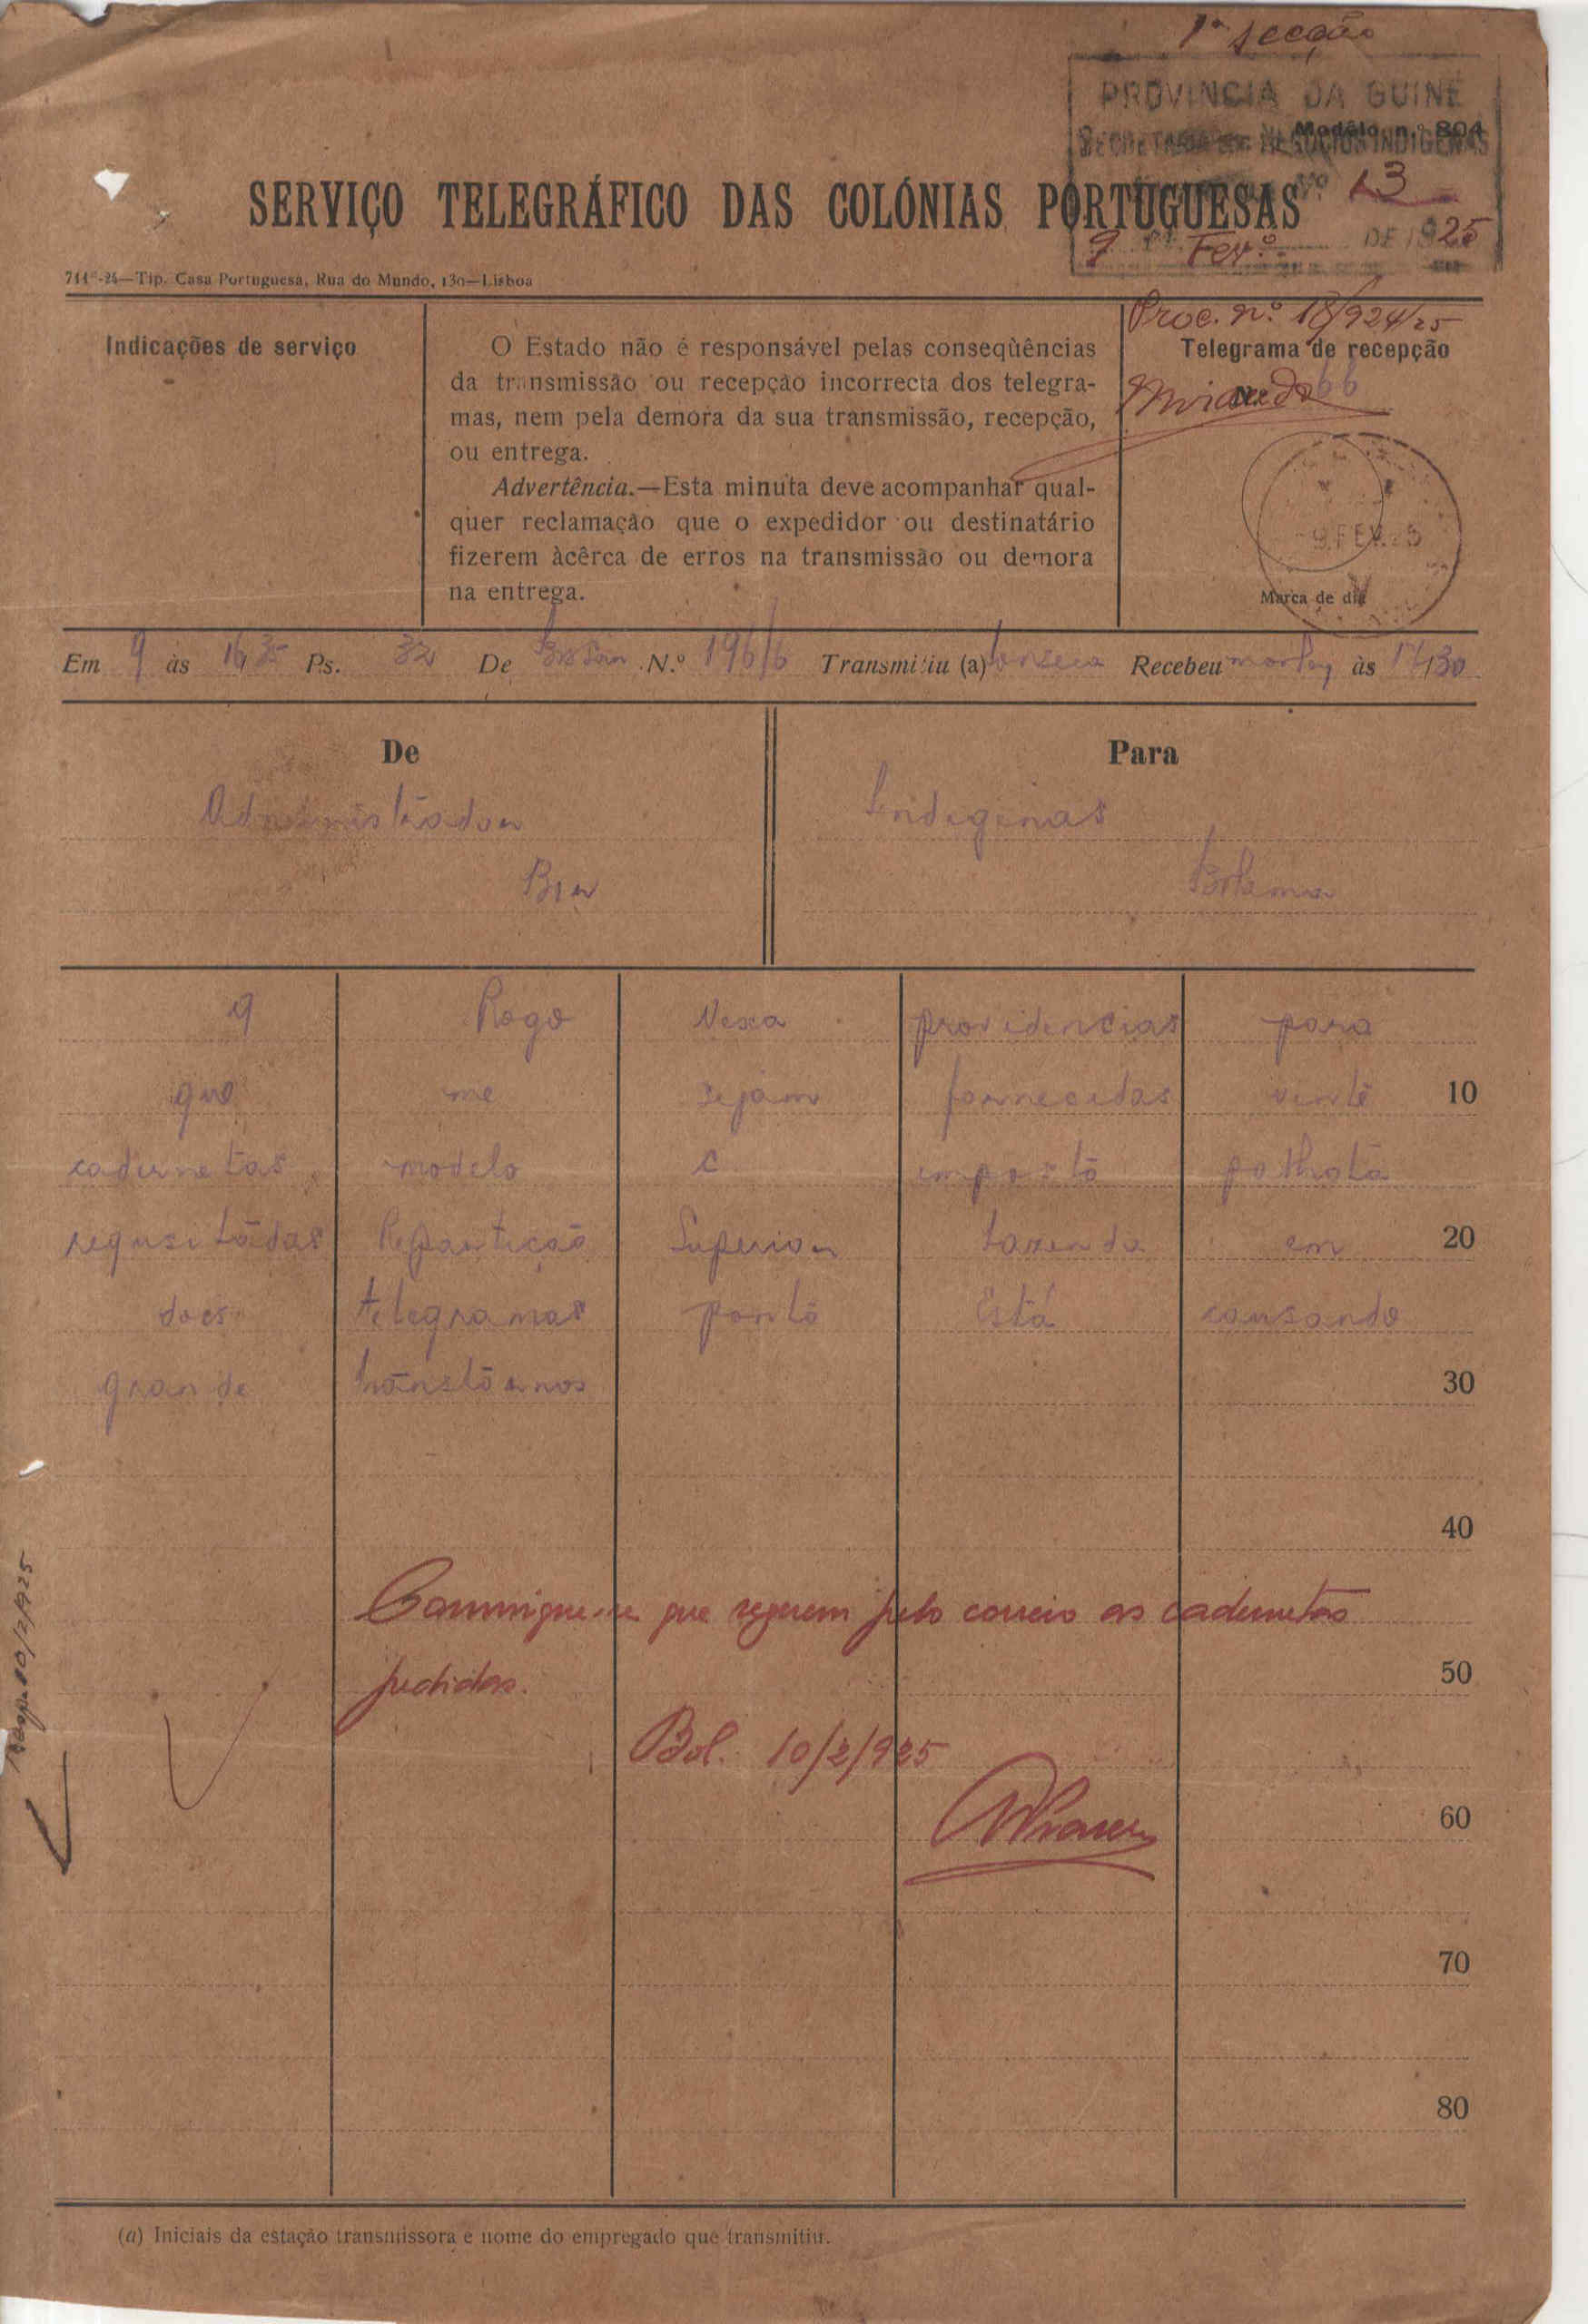 1ª secção
PROVINCIA DA GUINÉ
Modêlo n.º 804
SECRETARIA DOS NEGOCIOS INDIGENAS
Nº 13
9 Fev.º DE 1925
SERVIÇO TELEGRÁFICO DAS COLÓNIAS PORTUGUESAS
—Tip. Casa Portuguesa, Rua do Mundo, 130—Lisboa
Proc. n.º 18/924/25
Indicações de serviço
O Estado não é responsável pelas conseqùências
da transmissão ou recepção incorrecta dos telegra-
mas, nem pela demora da sua transmissão, recepção,
ou entrega.
Advertência.—Esta minuta deve acompanhar qual-
quer reclamação que o expedidor ou destinatário
fizerem àcêrca de erros na transmissão ou demora
na entrega.
Telegrama de recepção
66
9.FEV.25
Marca de dia
Em 9 às 16,35 Ps. 32 De N.º 196/6 Transmitiu (a) Fonseca Recebeu às 17,30
De
Para
Administrador
Indegenas
Bolama
9 Rogo Vexa providencias para
que me sejam fornecidas vinte 10
cadernetas modelo C imposto palhota
requsitadas Repartição Superior Fazenda em 20
does telegramas ponto Está causando
grande transtornos 30
40
Communique-se que seguem pelo correio as cadernetas
pedidas. 50
Bol. 10/2/925
60
70
80
10/2/925
(a) Iniciais da estação transmissora e nome do empregado que transmitiu.